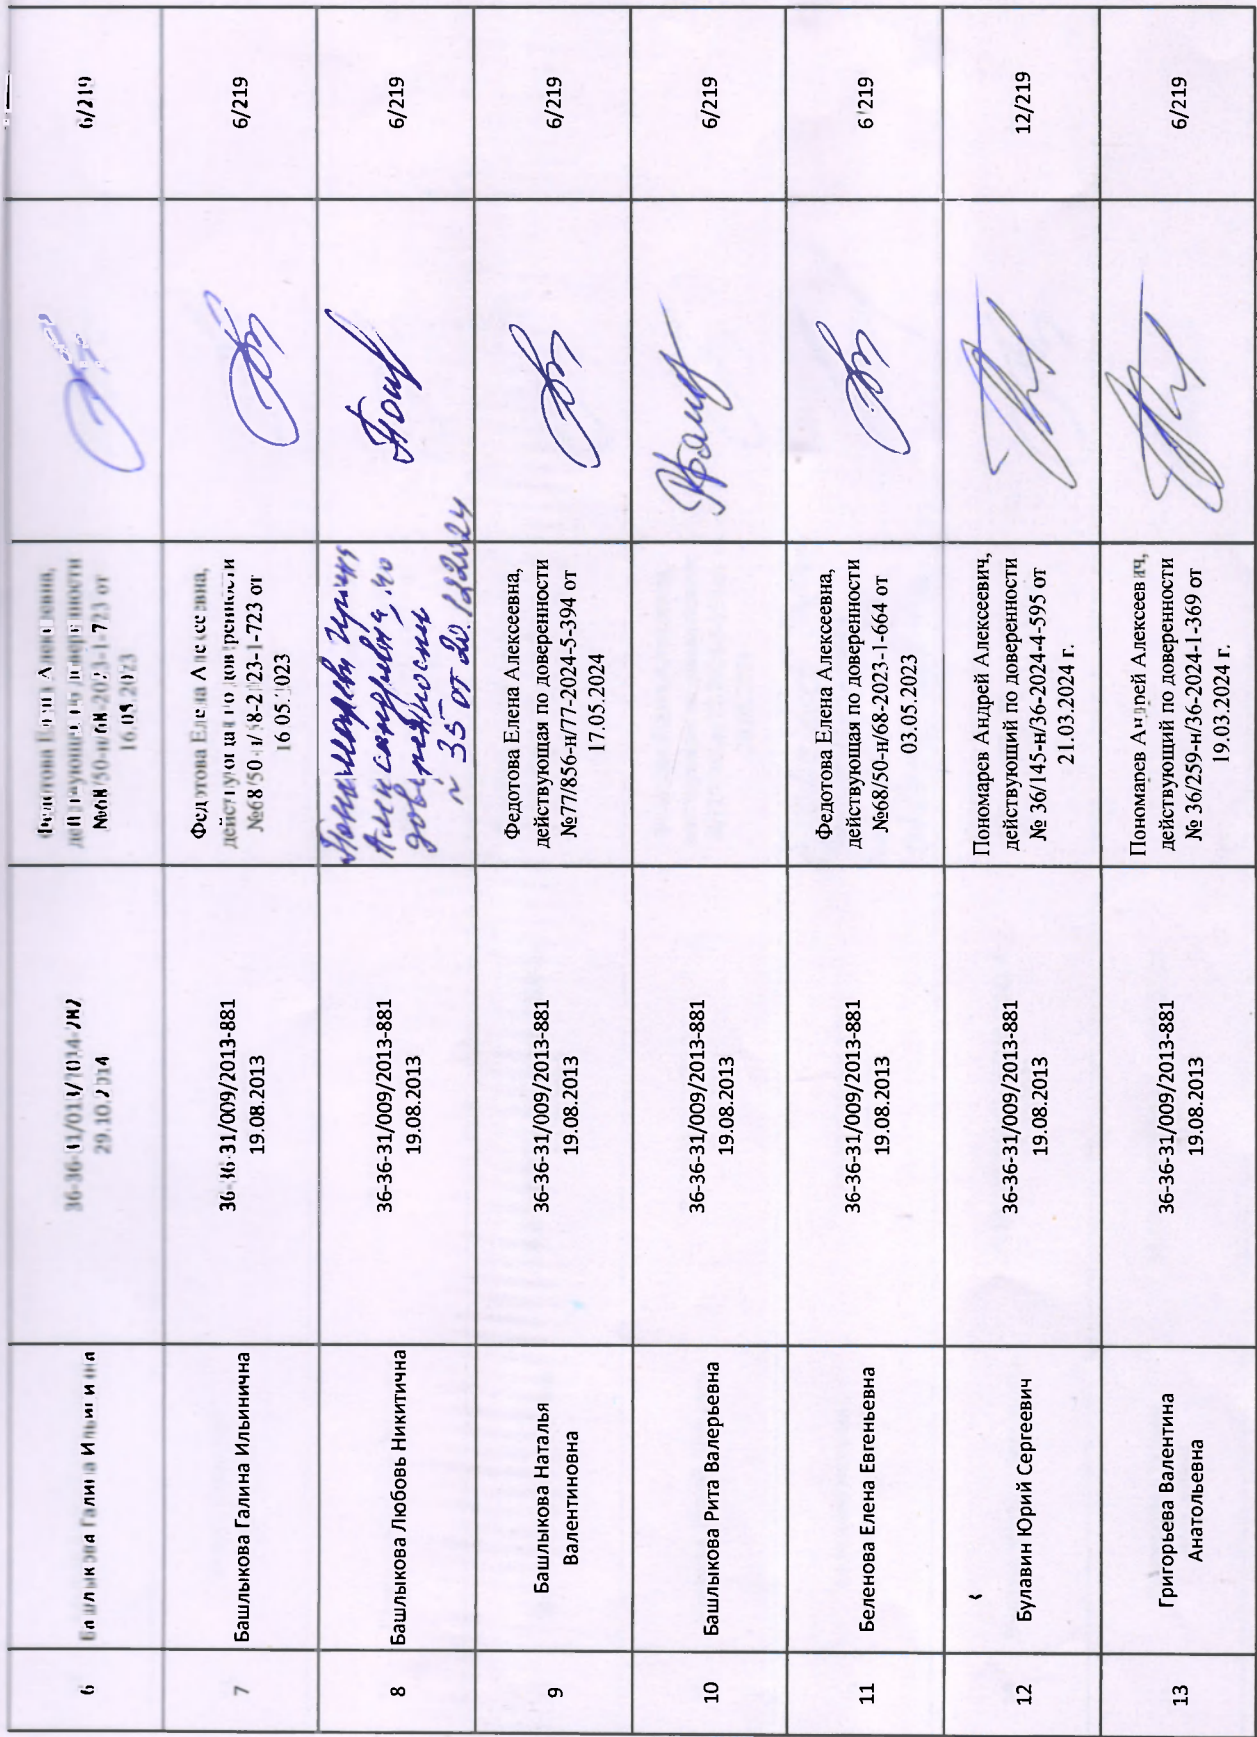 6
Галина
29.10.2014
6/219
7
Башлыкова Галина Ильинична
36-36-31/009/2013-881
19.08.2013
Федотова Елена Алексеевна,
действующая по доверенности
16.05.2023
6/219
8
Башлыкова Любовь Никитична
36-36-31/009/2013-881
19.08.2013
доверенности
№ 35 от 20.12.2024
6/219
9
Башлыкова Наталья
Валентиновна
36-36-31/009/2013-881
19.08.2013
Федотова Елена Алексеевна,
действующая по доверенности
№77/856-н/77-2024-5-394 от
17.05.2024
6/219
10
Башлыкова Рита Валерьевна
36-36-31/009/2013-881
19.08.2013
6/219
11
Беленова Елена Евгеньевна
36-36-31/009/2013-881
19.08.2013
Федотова Елена Алексеевна,
действующая по доверенности
№68/50-н/68-2023-1-664 от
03.05.2023
6/219
12
Булавин Юрий Сергеевич
36-36-31/009/2013-881
19.08.2013
Пономарев Андрей Алексеевич,
действующий по доверенности
№ 36/145-н/36-2024-4-595 от
21.03.2024 г.
12/219
13
Григорьева Валентина
Анатольевна
36-36-31/009/2013-881
19.08.2013
Пономарев Андрей Алексеевич,
действующий по доверенности
№ 36/259-н/36-2024-1-369 от
19.03.2024 г.
6/219